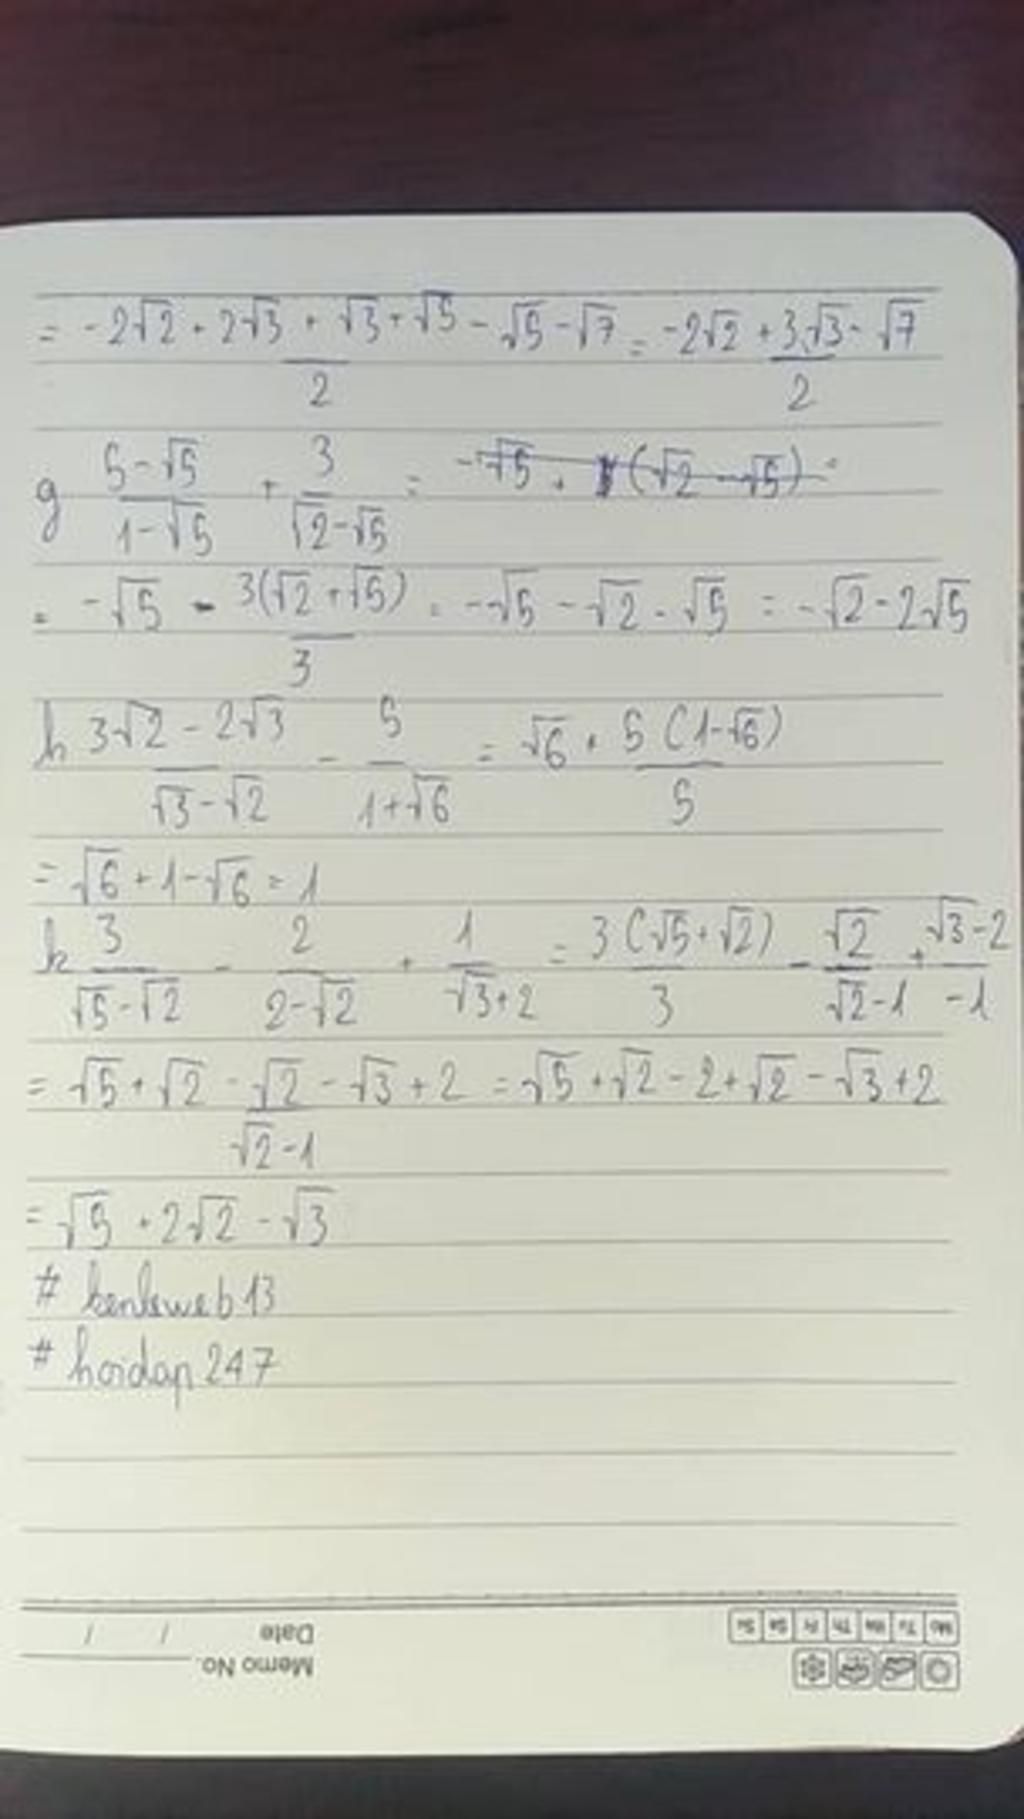 = -2√2 + 2√3 + √3 + √5 - √5 - √7 / 2 = -2√2 + 3√3 - √7 / 2
g 5-√5 / 1-√5 + 3 / √2-√5 =
= -√5 - 3(√2+√5) / 3 = -√5 - √2 - √5 = -√2 - 2√5
h 3√2 - 2√3 / √3-√2 - 5 / 1+√6 = √6 + 5(1-√6) / 5
= √6 + 1 - √6 = 1
k 3 / √5-√2 - 2 / 2-√2 + 1 / √3+2 = 3(√5+√2) / 3 - √2 / √2-1 + √3-2 / -1
= √5 + √2 - √2 / √2-1 - √3 + 2 = √5 + √2 - 2 + √2 - √3 + 2
= √5 + 2√2 - √3
# hoidap247
Memo No.
Date / /
Mo Tu We Th Fr Sa Su